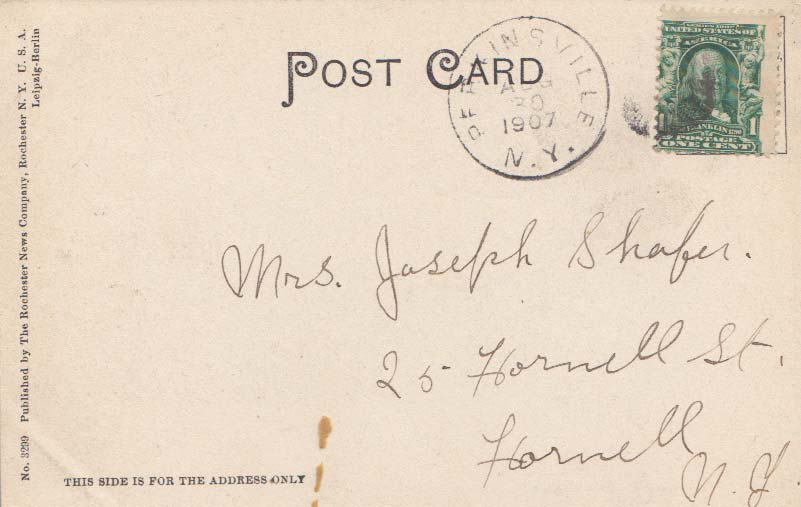 POST CARD
PERKINSVILLE
AUG
30
1907
N.Y.
SERIES 1902
UNITED STATES OF
AMERICA
1 FRANKLIN 1790 1
POSTAGE
ONE CENT
Mrs. Joseph Shafer.
25 Hornell St.
Hornell
N.Y.
THIS SIDE IS FOR THE ADDRESS ONLY
No. 3299 Published by The Rochester News Company, Rochester N. Y. U. S. A.
Leipzig-Berlin